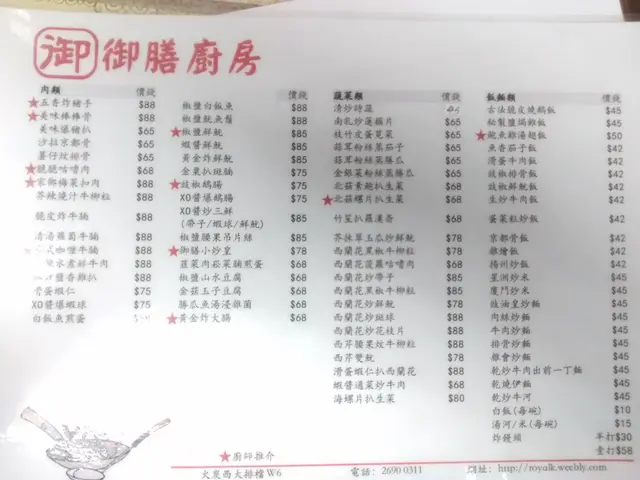 御 御膳廚房
肉類 價錢
★五香炸豬手 $88
★美味棒棒骨 $88
美味爆豬扒 $65
沙拉京都骨 $65
薯仔炆排骨 $65
★脆脆咕嚕肉 $68
★家鄉梅菜扣肉 $88
芥辣燒汁牛柳粒 $88
脆皮炸牛腩 $88
清湯蘿蔔牛腩 $88
咖喱牛腩 $88
水煮鮮牛肉 $88
$88
骨蛋蝦仁 $75
XO醬爆蝦球 $75
白飯魚煎蛋
價錢
椒鹽白飯魚 $88
椒鹽魷魚鬚 $88
★椒鹽鮮魷 $85
蝦醬鮮魷 $85
黃金炸鮮魷 $85
金東扒斑腩 $75
★豉椒鵝腸 $75
XO醬爆鵝腸 $75
XO醬炒三鮮
(帶子/蝦球/鮮魷) $85
椒鹽腰果吊片絲 $85
★御膳小炒皇 $78
韮菜肉崧菜脯煎蛋 $68
椒鹽山水豆腐 $68
金菇玉子豆腐 $68
勝瓜魚湯浸雜菌 $68
★黃金炸大腸 $68
蔬菜類 價錢
清炒時蔬
南乳炒蓮藕片 $65
枝竹皮蛋莧菜 $65
蒜茸粉絲蒸茄子 $65
蒜茸粉絲蒸勝瓜 $65
金銀菜粉絲蒸勝瓜 $65
北菇素鮑扒生菜 $68
★北菇螺片扒生菜 $68
竹笙扒羅漢齋 $68
芥抹單玉瓜炒鮮魷 $78
西蘭花黑椒牛柳粒 $78
西蘭花菠蘿咕嚕肉 $68
西蘭花炒帶子 $85
西蘭花黑椒牛柳粒 $85
西蘭花炒鮮魷 $78
西蘭花炒斑球 $88
西蘭花炒花枝片 $88
西芹腰果炆牛柳粒 $88
西芹雙魷 $78
滑蛋蝦仁扒西蘭花 $88
蝦醬通菜炒牛肉 $68
海螺片扒生菜 $80
飯麵類 價錢
古法脆皮燒鵝飯 $45
秘製鹽焗雞飯 $45
★鮑魚雞湯麵飯 $50
魚香茄子飯 $42
滑蛋牛肉飯 $42
豉椒排骨飯 $42
豉椒鮮魷飯 $42
生炒牛肉飯 $42
蛋菜粒炒飯 $42
京都骨飯 $42
雜燴飯 $42
揚州炒飯 $42
星洲炒米 $45
廈門炒米 $45
豉油皇炒麵 $45
肉絲炒麵 $45
牛肉炒麵 $45
排骨炒麵 $45
雜會炒麵 $45
乾炒牛肉出前一丁麵 $45
乾燒伊麵 $45
乾炒牛河 $45
白飯(每碗) $10
湯河/米(每碗) $15
炸饅頭 半打$30
壹打$58
★廚師推介
火炭西大排檔W6 電話: 2690 0311 網址: http://royalk.weebly.com